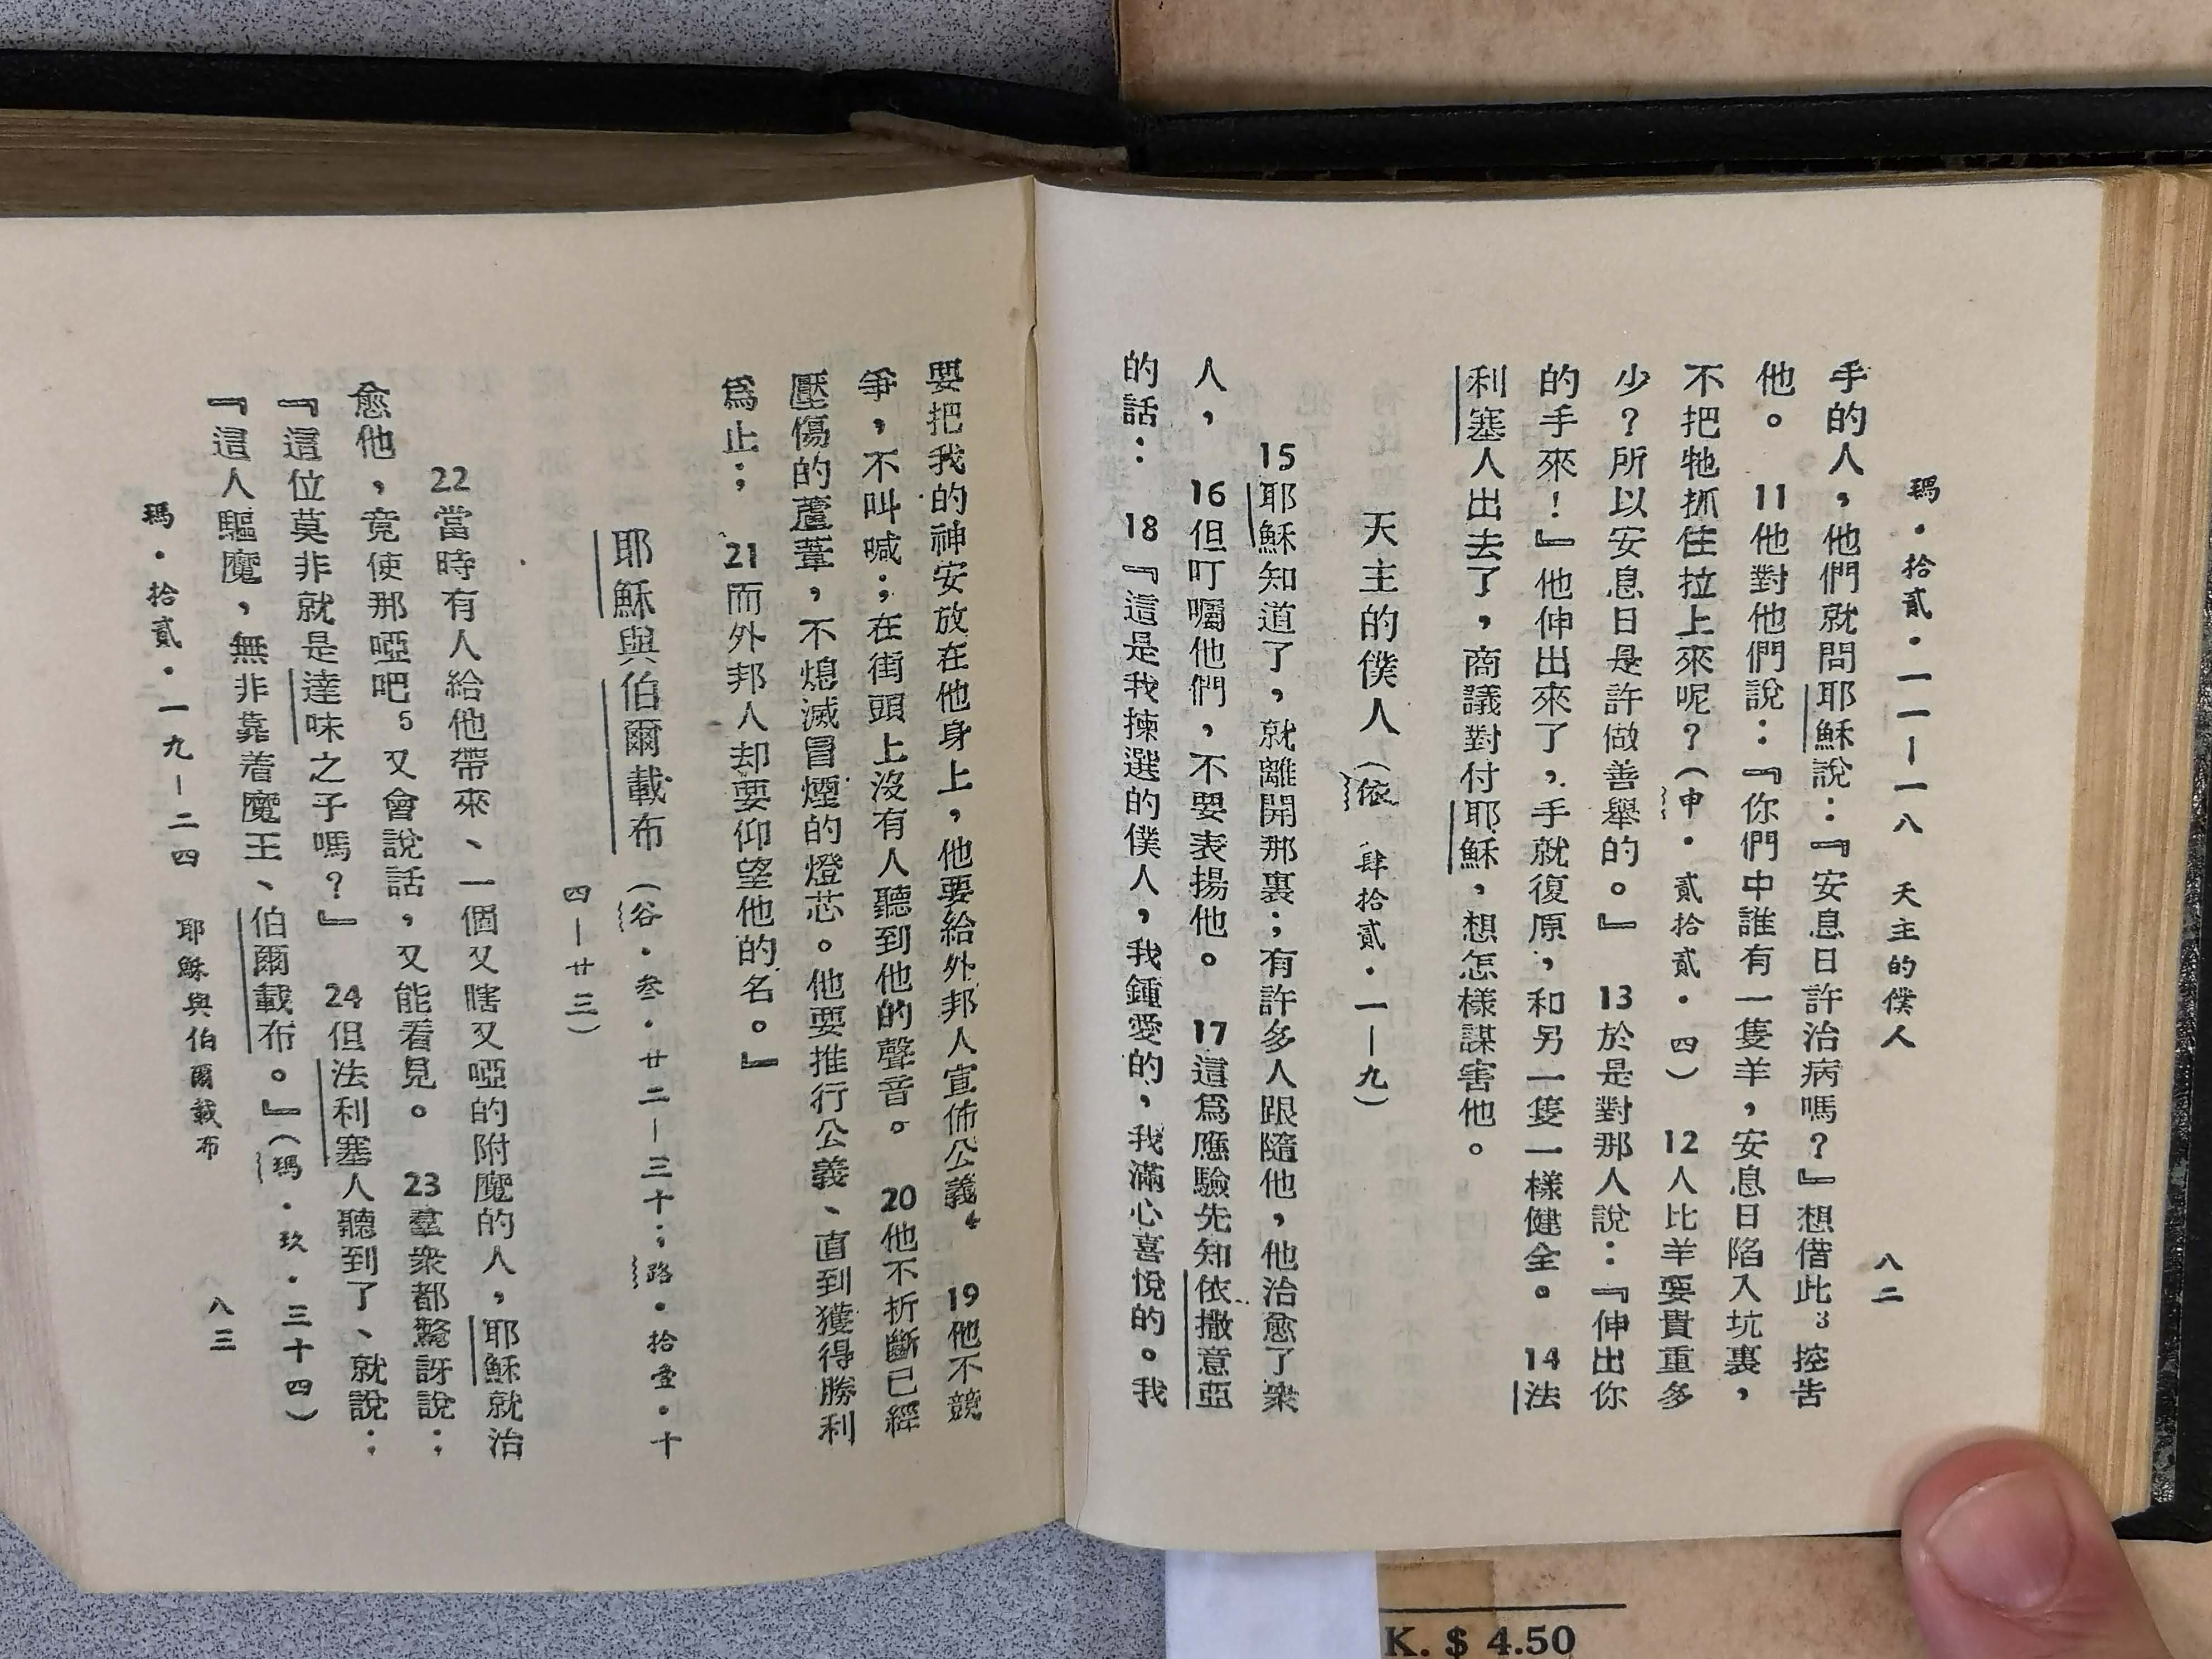 瑪・拾貳・一一—一八　天主的僕人　八二
手的人，他們就問耶穌說：『安息日許治病嗎？』想借此3控告
他。　11他對他們說：『你們中誰有一隻羊，安息日陷入坑裏，
不把牠抓住拉上來呢？（申・貳拾貳・四）　12人比羊要貴重多
少？所以安息日是許做善舉的。』　13於是對那人說：『伸出你
的手來！』他伸出來了，手就復原，和另一隻一樣健全。　14法
利塞人出去了，商議對付耶穌，想怎樣謀害他。
天主的僕人（依　肆拾貳・一—九）
15耶穌知道了，就離開那裏；有許多人跟隨他，他治愈了衆
人，　16但叮囑他們，不要表揚他。　17這爲應驗先知依撒意亞
的話：　18『這是我揀選的僕人，我鍾愛的，我滿心喜悅的。我
要把我的神安放在他身上，他要給外邦人宣佈公義4　19他不競
爭，不叫喊；在街頭上沒有人聽到他的聲音。　20他不折斷已經
壓傷的蘆葦，不熄滅冒煙的燈芯。他要推行公義、直到獲得勝利
爲止；　21而外邦人却要仰望他的名。』
耶穌與伯爾載布（谷・叁・廿二—三十；路・拾壹・十
四—廿三）
22當時有人給他帶來、一個又瞎又啞的附魔的人，耶穌就治
愈他，竟使那啞吧5又會說話，又能看見。　23羣衆都驚訝說：
『這位莫非就是達味之子嗎？』　24但法利塞人聽到了、就說：
『這人驅魔，無非靠着魔王、伯爾載布。』（瑪・玖・三十四）
瑪・拾貳・一九—二四　耶穌與伯爾載布　八三
K. $ 4.50